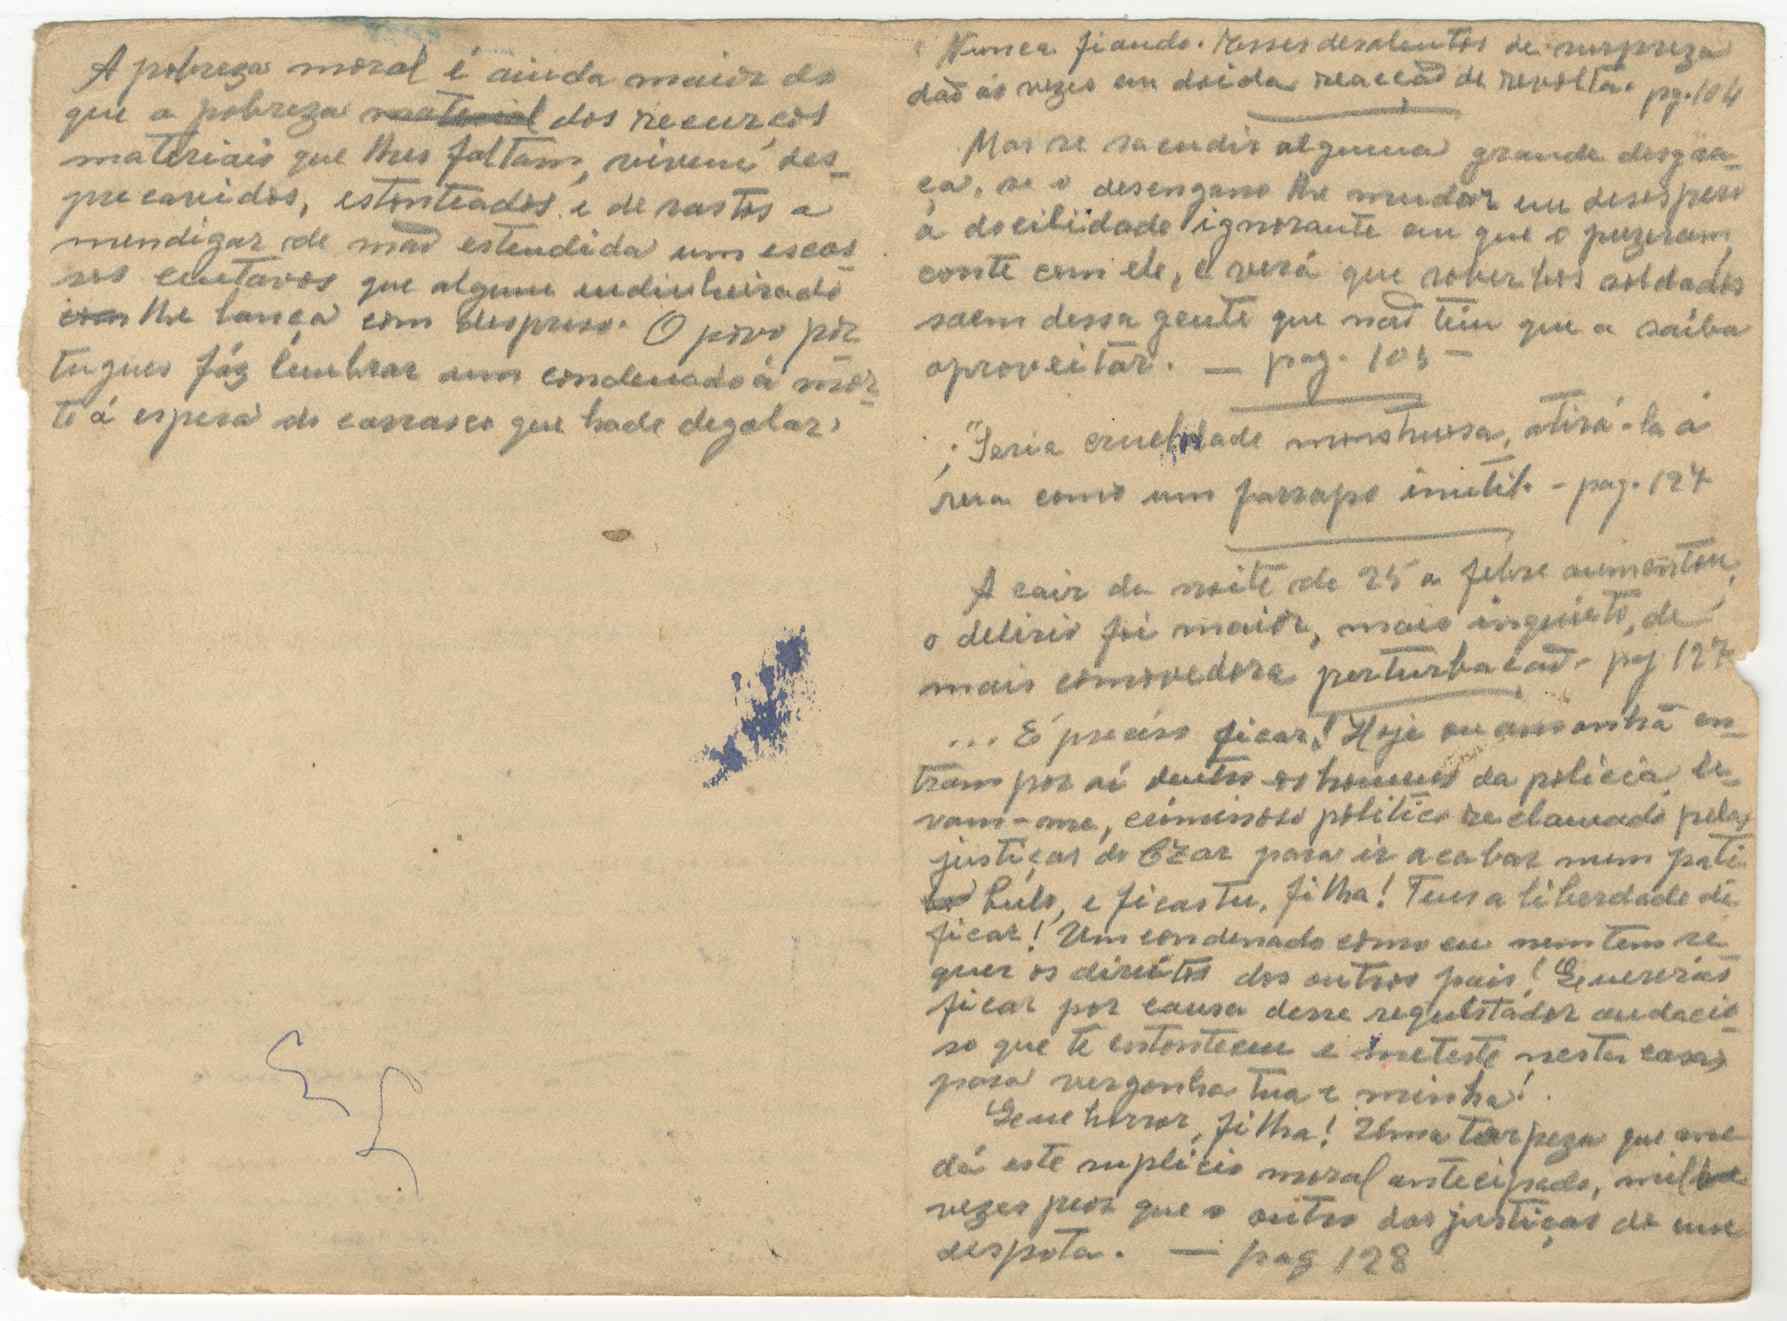 A pobreza moral é ainda maior do
que a pobreza material dos recurços
materiais que lhes faltam, vivem des-
precavidos, estonteados e de rastos a
mendigar de mão estendida uns escas-
sos centavos que algum endinheirado
com lhe lança com despreso. O povo por-
tugues fáz lembrar um condenado á mor-
te á espera do carrasco que hade degolar
Nunca fiando. Esses desalentos de surpreza
dão ás vezes em doida reacção de revolta. pg. 104
Mas se sacudir alguma grande desgra-
ça, se o desengano lhe mudar em desespero
a docilidade ignorante em que o puzeram,
conte com ele, e verá que soberbos soldados
saem dessa gente que não tem que a saiba
aproveitar. — pag. 105 —
"Seria crueldade monstruosa, atirá-la á
rua como um farrapo inutil. - pag. 127
A cair da noite de 25 a febre aumentou,
o delirio foi maior, mais inquieto, de
mais comovedora perturbação - pag 127
... É preciso ficar! Hoje ou amanhã en-
tram por aí dentro os homens da policia, le-
vam-me, criminoso politico reclamado pelas
justiças do Czar para ir acabar num pati-
bulo, e ficas tu, filha! Tens a liberdade de
ficar! Um condenado como eu nem tem se
quer os direitos dos outros pais! Quererias
ficar por causa desse requestador audacio-
so que te entonteceu e meteste nesta casa,
para vergonha tua e minha!
Que horror, filha! Uma torpeza que me
dá este suplicio moral antecipado, mil
vezes peor que o outro das justiças de um
despota. — pag 128